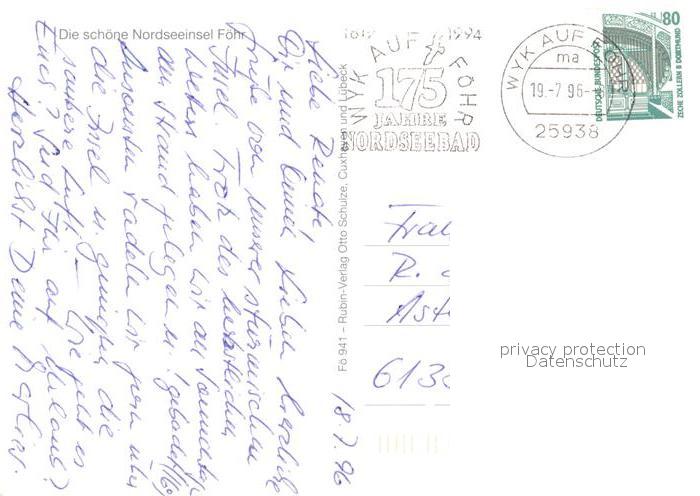 Die schöne Nordseeinsel Föhr
18.7.96
Liebe Renate,
Dir und Deinen Lieben herzliche
Grüße von unserer stürmischen
Insel. Trotz des herbstlichen
Wetters haben wir am Sonnabend
am Strand gelegen u. gebadet
Ansonsten radeln wir gern über
die Insel u. genießen die
saubere Luft. – Wie geht es
Euch? Seid Ihr auf Urlaub?
Herzlichst Deine
Fö 941 – Rubin-Verlag Otto Schulze, Cuxhaven und Lübeck
1819 1994
WYK AUF FÖHR
175
JAHRE
NORDSEEBAD
WYK AUF FÖHR
ma
19.-7.96-
25938
80
DEUTSCHE BUNDESPOST
ZECHE ZOLLERN II DORTMUND
Frau
R.
613
privacy protection
Datenschutz